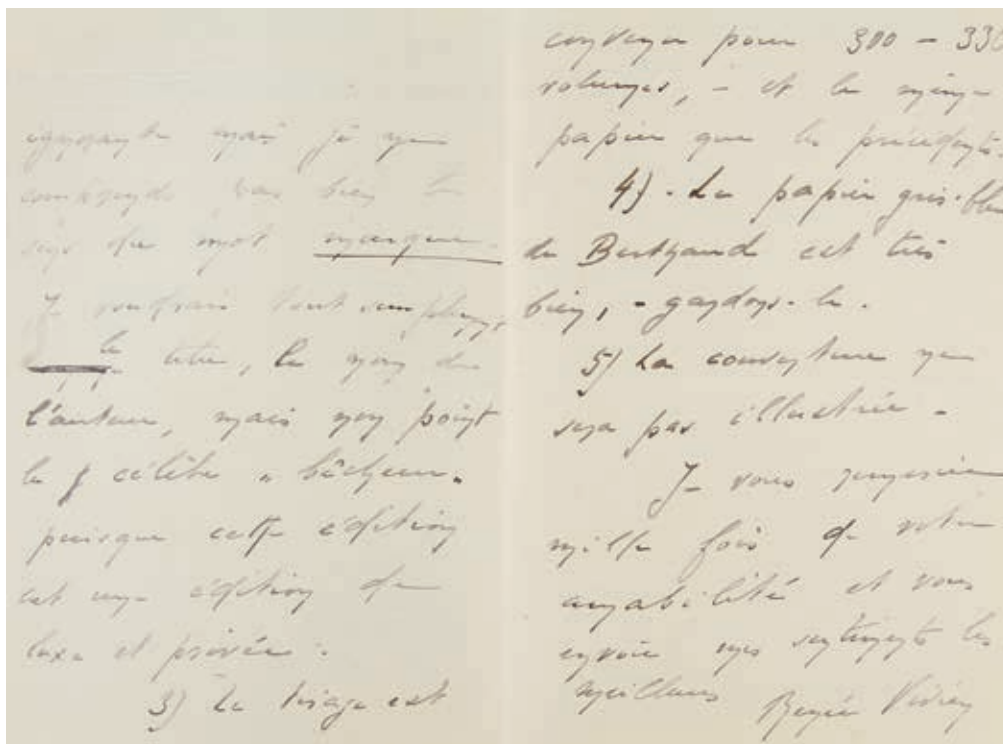 ignorante mais je ne
comprends pas bien le
sens du mot marque.
Je voudrais tout simplement
le titre, le nom de
l'auteur, mais non point
le célèbre „ bêcheur „
puisque cette édition
est une édition de
luxe et privée.
3) Le tirage est
convenu pour 300 – 330
volumes, – et le même
papier que les précédents.
4). Le papier gris-bleu
de Bertrand est très
bien, – gardons-le.
5) La couverture ne
sera pas illustrée –
Je vous remercie
mille fois de votre
amabilité et vous
envoie mes sentiments les
meilleurs Renée Vivien